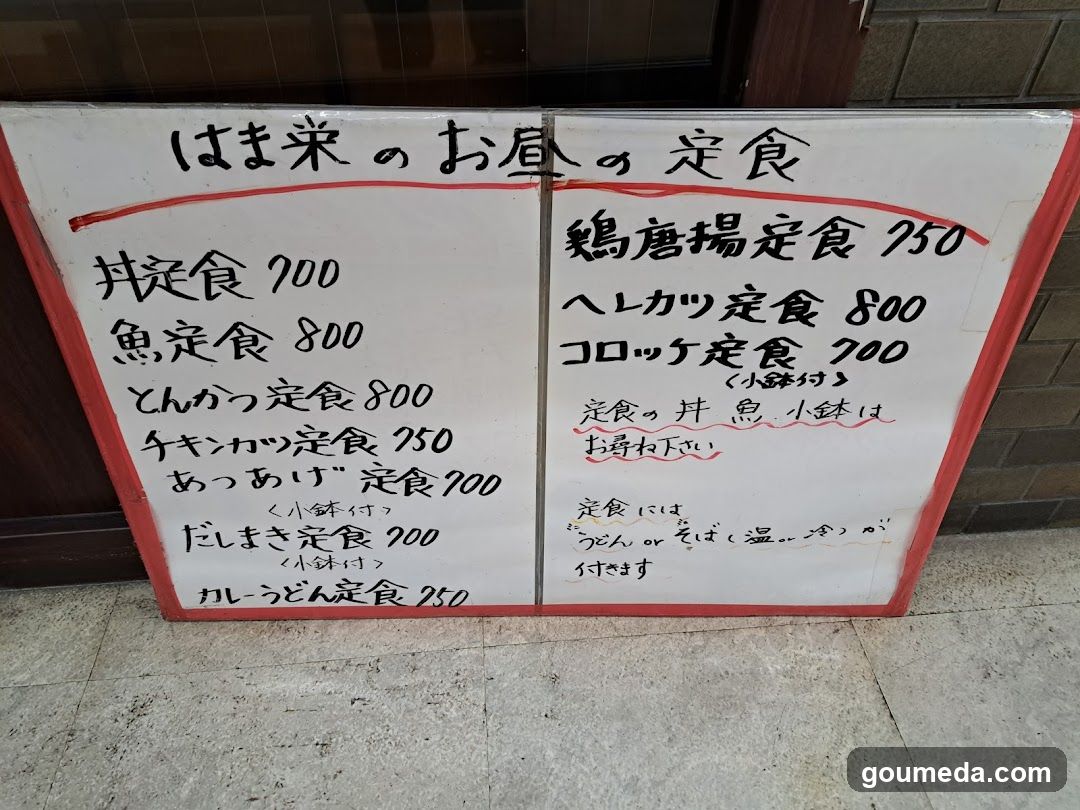 はま栄のお昼の定食
丼定食 700
魚定食 800
とんかつ定食 800
チキンカツ定食 750
あつあげ定食 700
〈小鉢付〉
だしまき定食 700
〈小鉢付〉
カレーうどん定食 750
鶏唐揚定食 750
ヘレカツ定食 800
コロッケ定食 700
〈小鉢付〉
定食の丼 魚 小鉢は
お尋ね下さい
定食には
うどん or そば(温 or 冷)が
付きます
goumeda.com